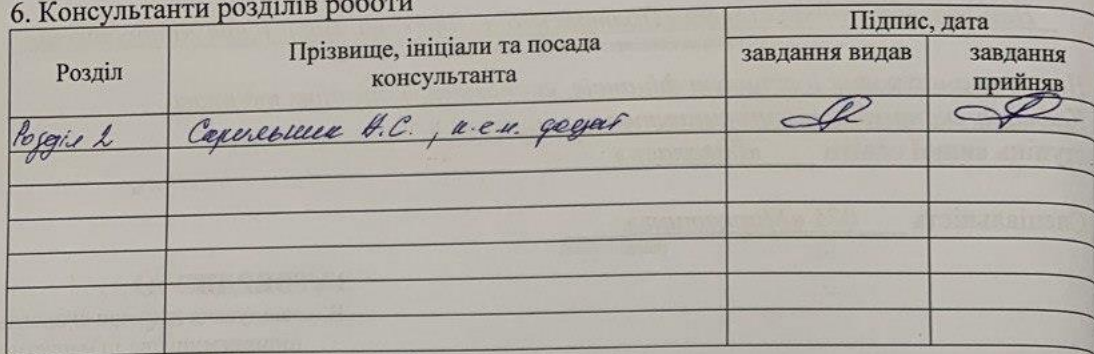 6. Консультанти розділів роботи
Розділ
Прізвище, ініціали та посада
консультанта
Підпис, дата
завдання видав
завдання
прийняв
Розділ 2
к.е.н. доцент